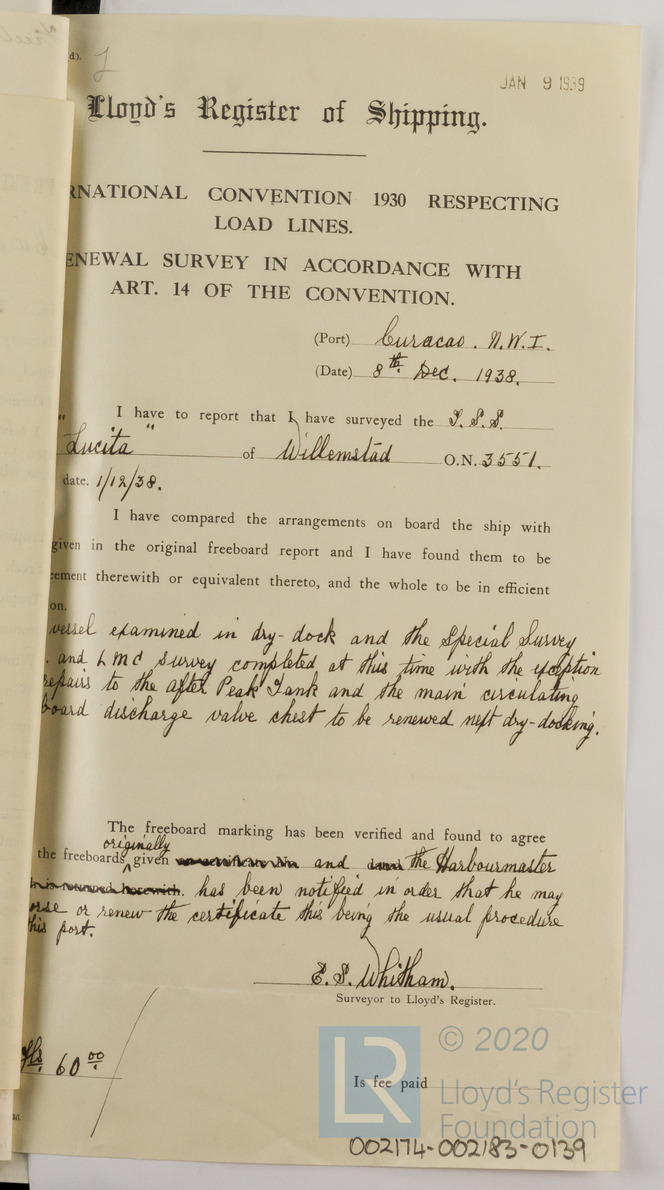 d).
JAN 9 1939
Lloyd's Register of Shipping.
RNATIONAL CONVENTION 1930 RESPECTING
LOAD LINES.
ENEWAL SURVEY IN ACCORDANCE WITH
ART. 14 OF THE CONVENTION.
(Port) Curacao. N.W.I.
(Date) 8th Dec. 1938.
I have to report that I have surveyed the T.S.S.
"Lucita" of Willemstad O.N. 3551.
date. 1/12/38.
I have compared the arrangements on board the ship with
given in the original freeboard report and I have found them to be
eement therewith or equivalent thereto, and the whole to be in efficient
on.
vessel examined in dry-dock and the Special Survey
. and LMC Survey completed at this time with the exception
repairs to the after Peak Tank and the main circulating
board discharge valve chest to be renewed next dry-docking.
The freeboard marking has been verified and found to agree
the freeboards originally given and the Harbourmaster
has been notified in order that he may
orse or renew the certificate this being the usual procedure
this port.
E. S. Whitham.
Surveyor to Lloyd's Register.
Fls. 60 00
Is fee paid
LR
© 2020
Lloyd's Register
Foundation
002174-002183-0139